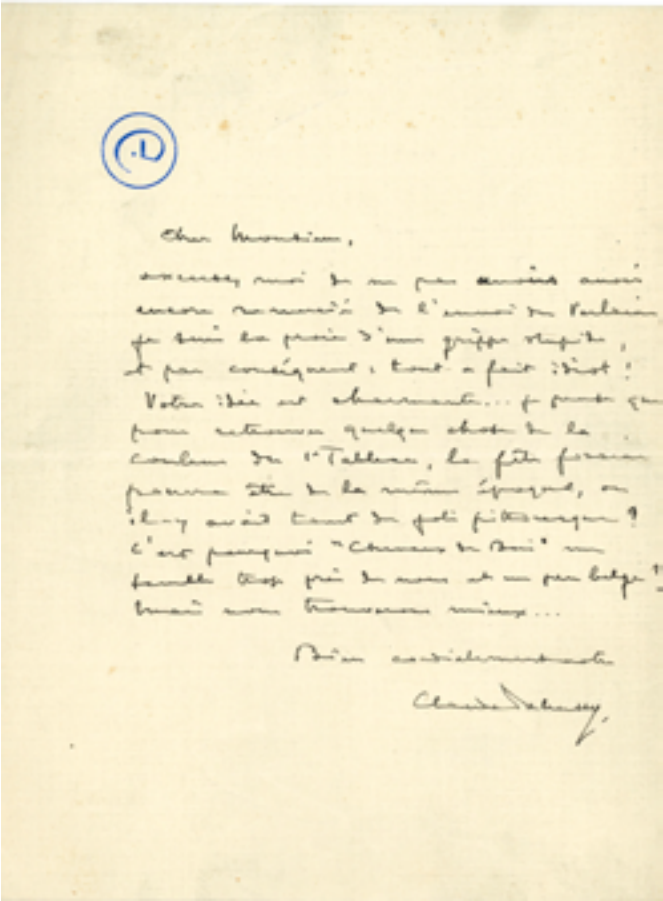 CD
Cher Monsieur,
excusez moi de ne pas avoir
encore remercié de l'envoi du Verlaine
je suis la proie d'une grippe stupide,
et par conséquent : tout a fait idiot !
Votre idée est charmante... je pense que
pour retrouver quelque chose de la
couleur du 1er Tableau, la fête foraine
pourra être de la même époque, ou
il-y avait tant de joli pittoresque !
C'est pourquoi "Chevaux de Bois" me
semble trop près de nous et un peu belge !!
Mais nous trouverons mieux...
Bien cordialement votre
Claude Debussy